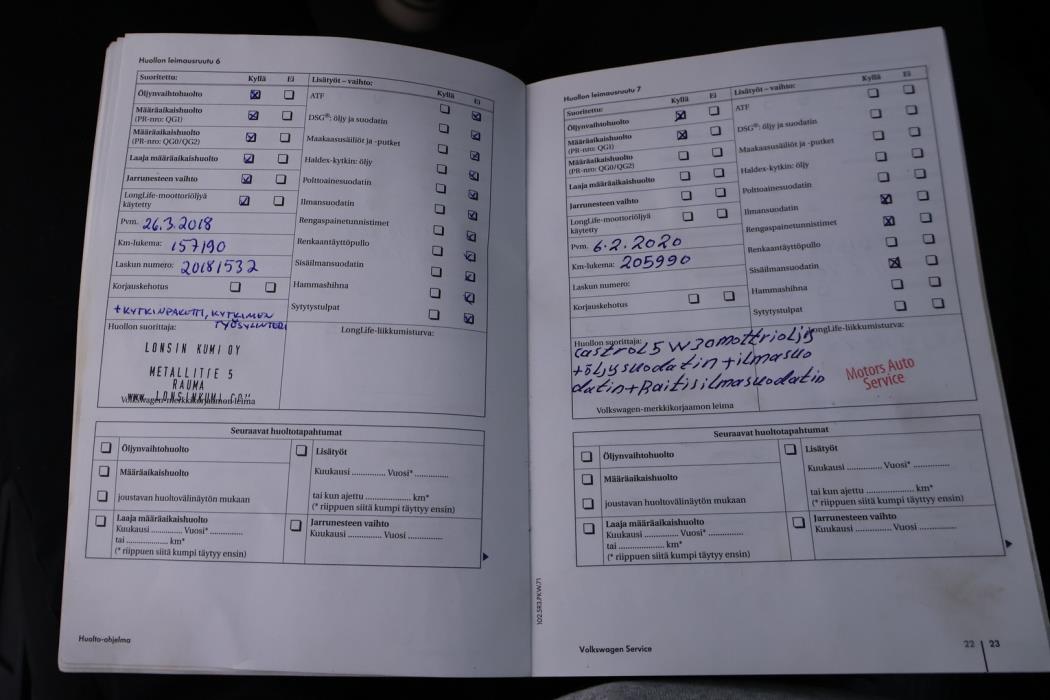 Huollon leimausruutu 6
Suoritettu: Kyllä Ei
Öljynvaihtohuolto
Määräaikaishuolto
(PR-nro: QG1)
Määräaikaishuolto
(PR-nro: QG0/QG2)
Laaja määräaikaishuolto
Jarrunesteen vaihto
LongLife-moottoriöljyä
käytetty
Pvm. 26.3.2018
Km-lukema: 157190
Laskun numero: 20181532
Korjauskehotus
+KYTKINPAKETTI, KYTKIMEN
TYÖSYLINTERI
Huollon suorittaja:
LONSIN KUMI OY
METALLITIE 5
RAUMA
WWW.LONSINKUMI.COM
Volkswagen-merkkikorjaamon leima
Lisätyöt – vaihto: Kyllä Ei
ATF
DSG®: öljy ja suodatin
Maakaasusäiliöt ja -putket
Haldex-kytkin: öljy
Polttoainesuodatin
Ilmansuodatin
Rengaspainetunnistimet
Renkaantäyttöpullo
Sisäilmansuodatin
Hammashihna
Sytytystulpat
LongLife-liikkumisturva:
Seuraavat huoltotapahtumat
Öljynvaihtohuolto
Määräaikaishuolto
joustavan huoltovälinäytön mukaan
Laaja määräaikaishuolto
Kuukausi .............. Vuosi* ..............
tai .................... km*
(* riippuen siitä kumpi täytyy ensin)
Lisätyöt
Kuukausi .............. Vuosi* ..............
tai kun ajettu .................... km*
(* riippuen siitä kumpi täytyy ensin)
Jarrunesteen vaihto
Kuukausi .............. Vuosi ..............
Huolto-ohjelma
Huollon leimausruutu 7
Suoritettu: Kyllä Ei
Öljynvaihtohuolto
Määräaikaishuolto
(PR-nro: QG1)
Määräaikaishuolto
(PR-nro: QG0/QG2)
Laaja määräaikaishuolto
Jarrunesteen vaihto
LongLife-moottoriöljyä
käytetty
Pvm. 6.2.2020
Km-lukema: 205990
Laskun numero:
Korjauskehotus
Huollon suorittaja:
castrol 5W30 mottrioljy
+öljysuodatin +ilmasuo
datin+Raitisilmasuodatin
Volkswagen-merkkikorjaamon leima
Lisätyöt – vaihto: Kyllä Ei
ATF
DSG®: öljy ja suodatin
Maakaasusäiliöt ja -putket
Haldex-kytkin: öljy
Polttoainesuodatin
Ilmansuodatin
Rengaspainetunnistimet
Renkaantäyttöpullo
Sisäilmansuodatin
Hammashihna
Sytytystulpat
LongLife-liikkumisturva:
Motors Auto
Service
Seuraavat huoltotapahtumat
Öljynvaihtohuolto
Määräaikaishuolto
joustavan huoltovälinäytön mukaan
Laaja määräaikaishuolto
Kuukausi .............. Vuosi* ..............
tai .................... km*
(* riippuen siitä kumpi täytyy ensin)
Lisätyöt
Kuukausi .............. Vuosi* ..............
tai kun ajettu .................... km*
(* riippuen siitä kumpi täytyy ensin)
Jarrunesteen vaihto
Kuukausi .............. Vuosi ..............
102.5R3.PKW.71
Volkswagen Service
22 23